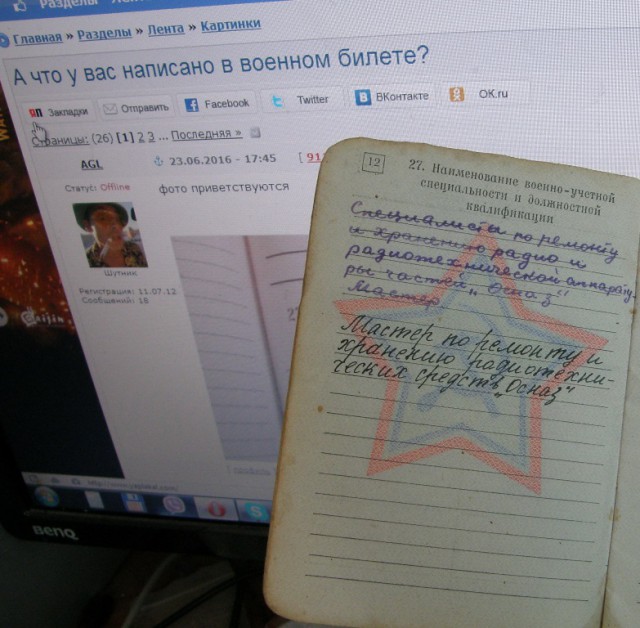 Разделы
Главная » Разделы » Лента » Картинки
А что у вас написано в военном билете?
ЯП Закладки Отправить Facebook Twitter ВКонтакте OK.ru
Страницы: (26) [1] 2 3 ... Последняя »
AGL
23.06.2016 - 17:45
[ 91
Статус: Offline
фото приветствуются
Шутник
Регистрация: 11.07.12
Сообщений: 18
BenQ
12
27. Наименование военно-учетной
специальности и должностной
квалификации
Специалисты по ремонту
и хранению радио и
радиотехнической аппарату
ры частей „Осназ"
Мастер
Мастер по ремонту и
хранению радиотехни-
ческих средств „Осназ"